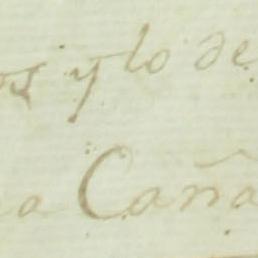 os y lo de
a Caña